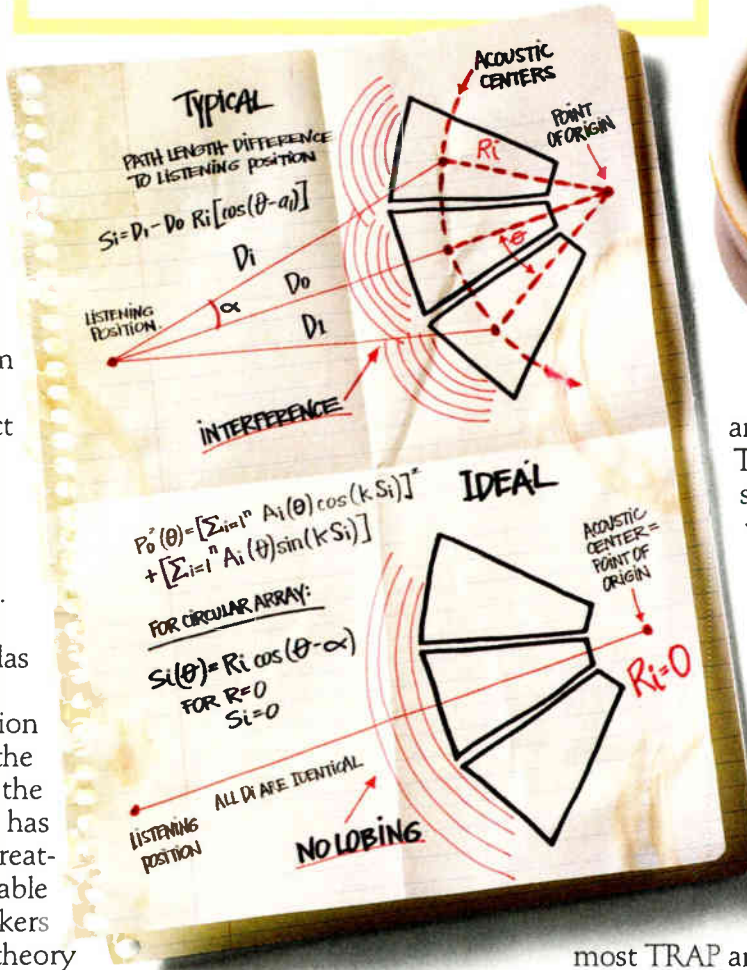 TYPICAL
PATH LENGTH DIFFERENCE
TO LISTENING POSITION
Si=D1-Do Ri[cos(θ-a1)]
Di
Do
D1
α
LISTENING
POSITION.
INTERFERENCE
ACOUSTIC
CENTERS
POINT
OF ORIGIN
Ri
θ
IDEAL
Po²(θ)=[Σi=1ⁿ Ai(θ)cos(kSi)]²
+[Σi=1ⁿ Ai(θ)sin(kSi)]
FOR CIRCULAR ARRAY:
Si(θ)=Ri cos(θ-α)
FOR R=0
Si=0
ACOUSTIC
CENTER=
POINT OF
ORIGIN
Ri=0
ALL Di ARE IDENTICAL
LISTENING
POSITION
NO LOBING
ion
the
the
has
reat-
able
kers
theory
most TRAP